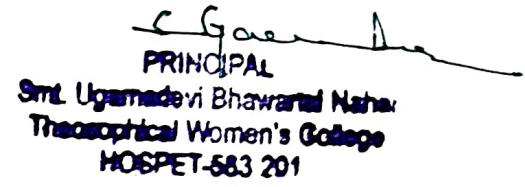 PRINCIPAL
Smt. Ugamadevi Bhawarlal Nahar
Theosophical Women's College
HOSPET-583 201